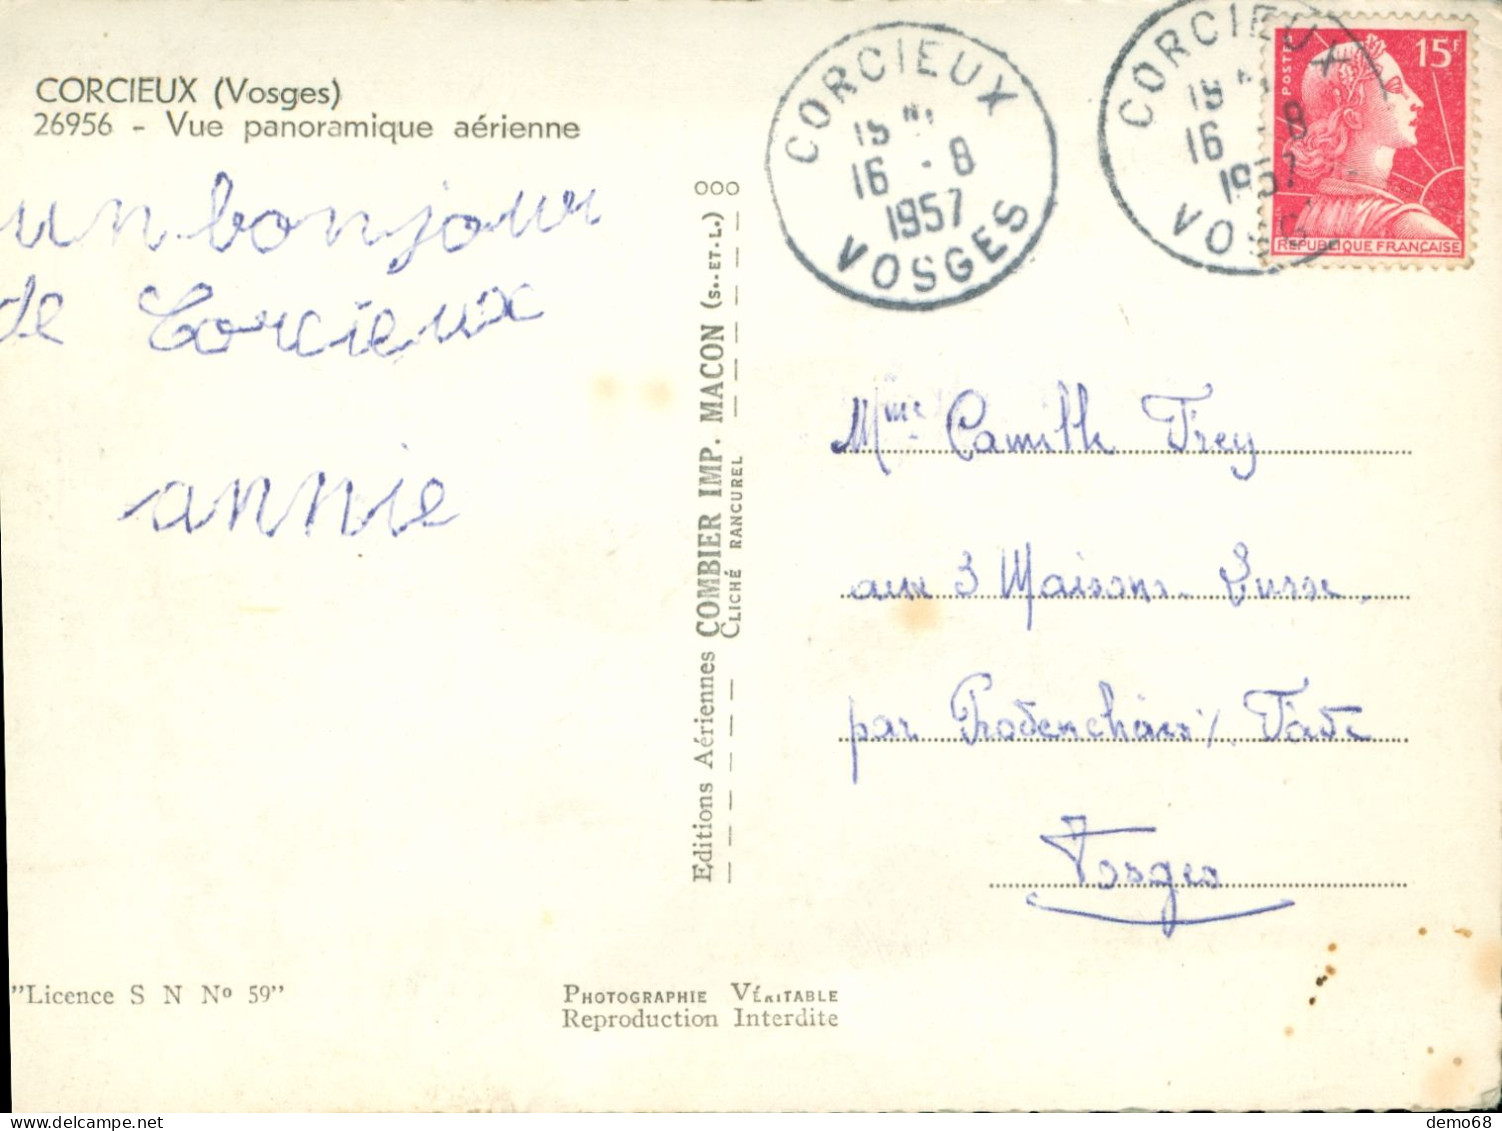 CORCIEUX (Vosges)
26956 - Vue panoramique aérienne
un bonjour
de Corcieux
annie
"Licence S N Nº 59"
Photographie Véritable
Reproduction Interdite
Editions Aériennes COMBIER IMP. MACON (S.-ET-L.) ooo
Cliché RANCUREL
CORCIEUX
16 - 8
1957
VOSGES
CORCIEUX
16 - 8
1957
VOSG
POSTES
15F
REPUBLIQUE FRANÇAISE
Mme Camille Frey
aux 3 Maisons - Lusse.
par Provenchères s/ Fave
Vosges
demo68